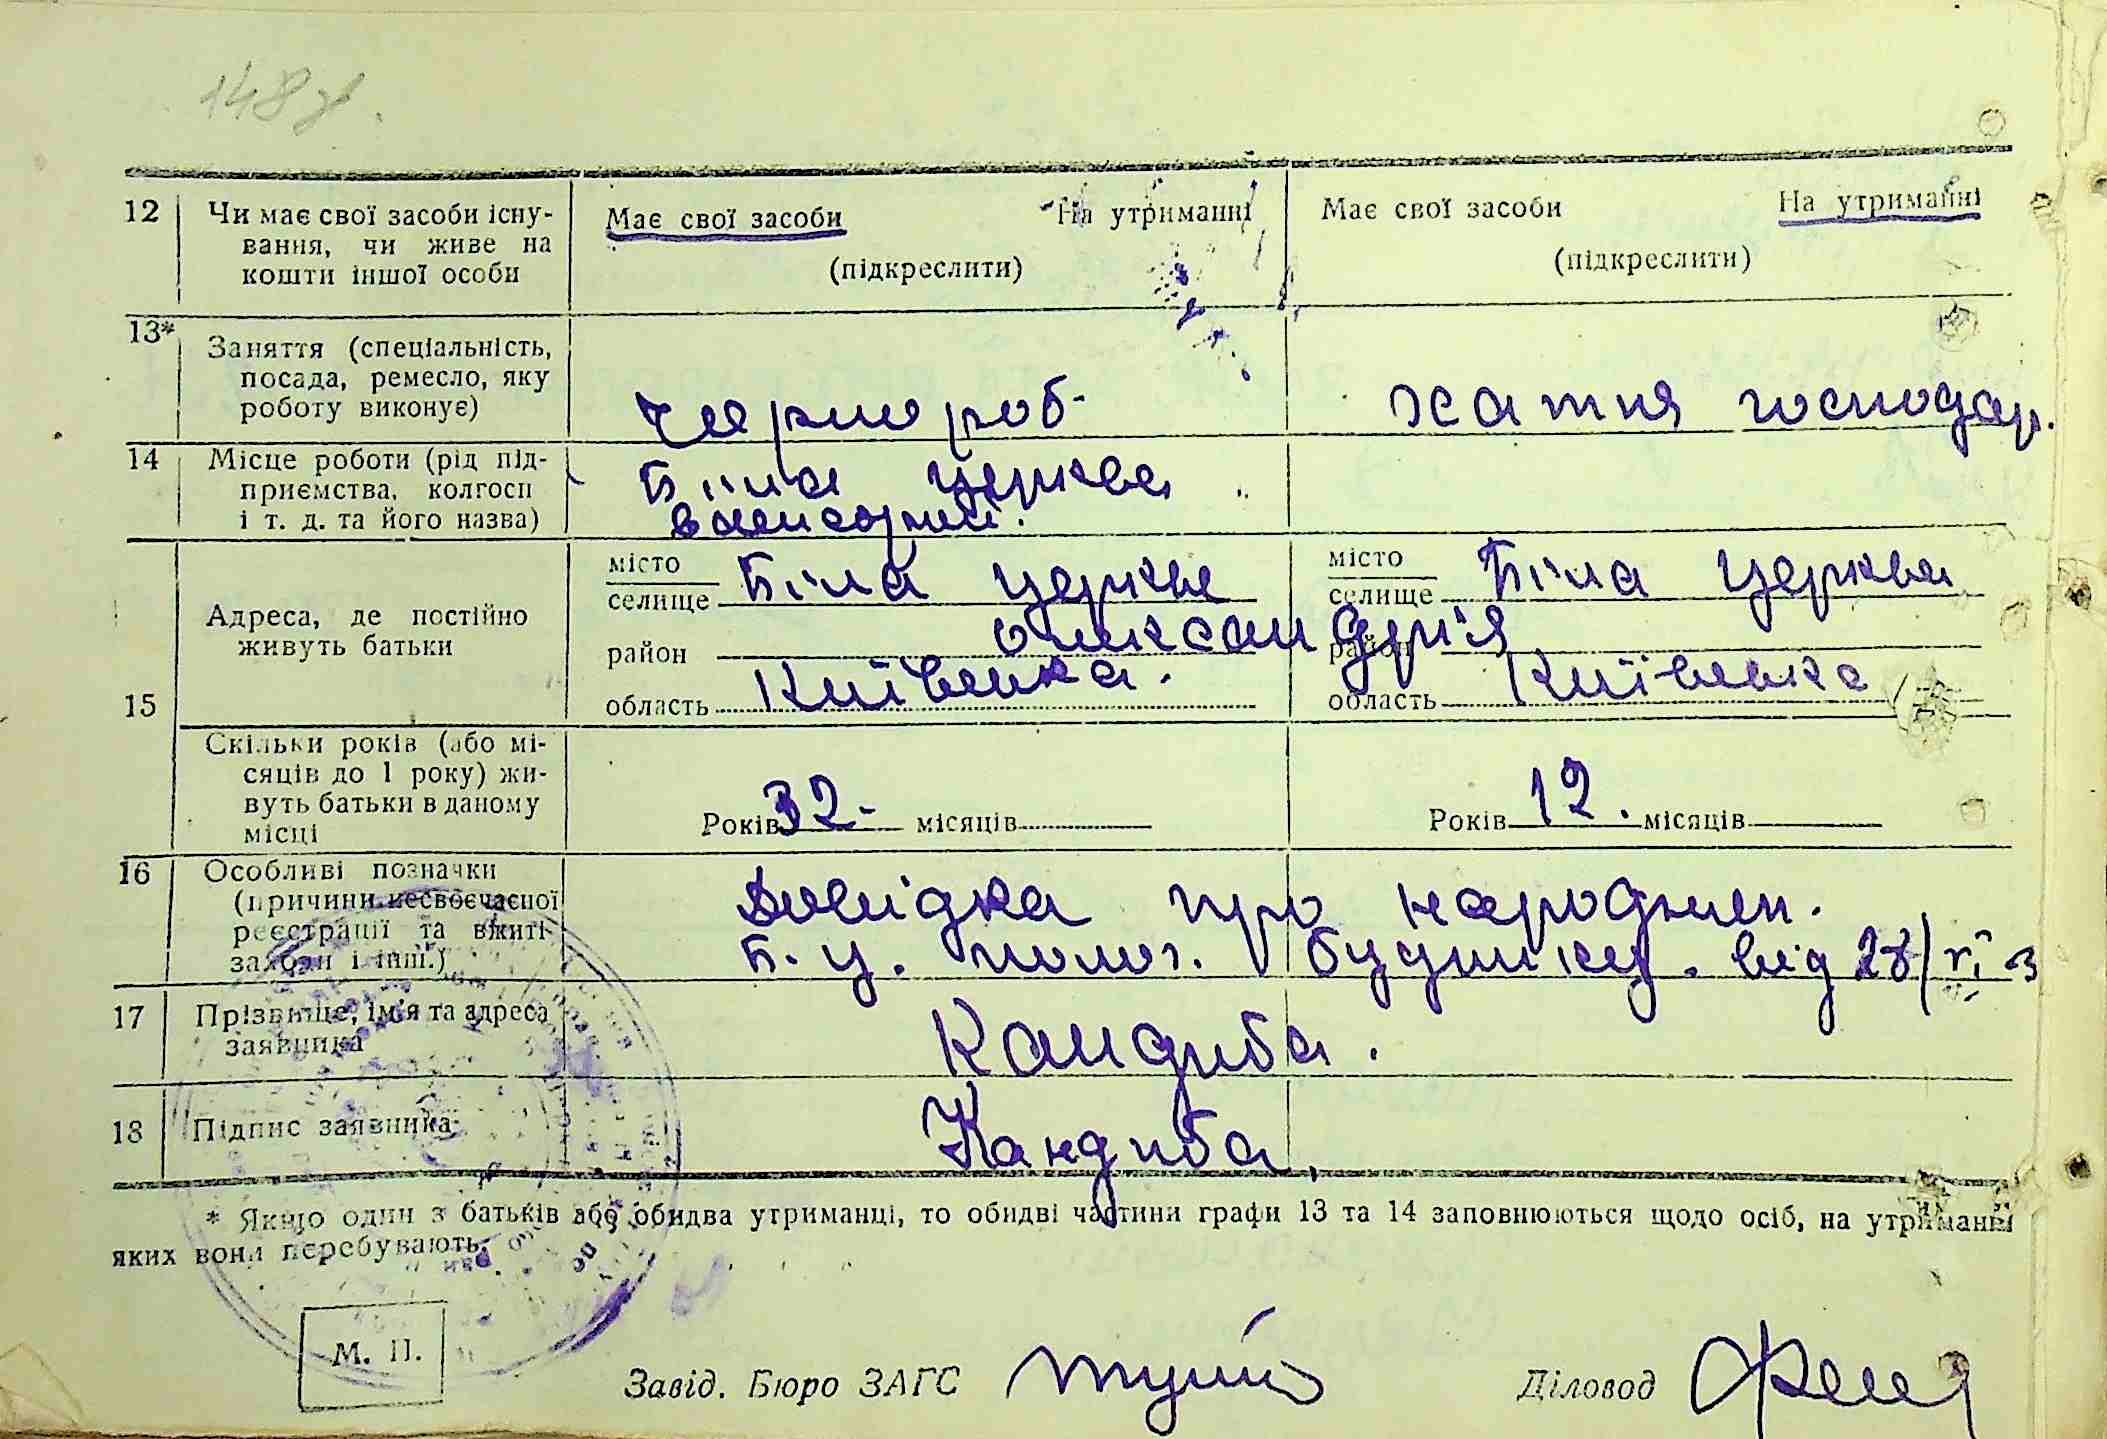 148
12 Чи має свої засоби існу- Має свої засоби На утриманні Має свої засоби На утриманні
вання, чи живе на
кошти іншої особи (підкреслити) (підкреслити)
13* Заняття (спеціальність,
посада, ремесло, яку
роботу виконує) Чернороб- хатня господар.
14 Місце роботи (рід під- Біла церква "
приємства, колгосп
і т. д. та його назва)
місто Біла церква місто Біла церква
селище селище
Адреса, де постійно олександрія
живуть батьки район район
15 область Київська. область Київська
Скільки років (або мі-
сяців до 1 року) жи-
вуть батьки в даному Років 32- місяців Років 12. місяців
місці
16 Особливі позначки Довідка про народжен.
(причини несвоєчасної
реєстрації та вжиті Б. ц. полог. будинку. від
заходи і інш.)
17 Прізвище, ім'я та адреса Кандиба.
заявника
18 Підпис заявника Кандиба
* Якщо один з батьків або обидва утриманці, то обидві частини графи 13 та 14 заповнюються щодо осіб, на утриманні
яких вони перебувають.
М. П.
Завід. Бюро ЗАГС Діловод